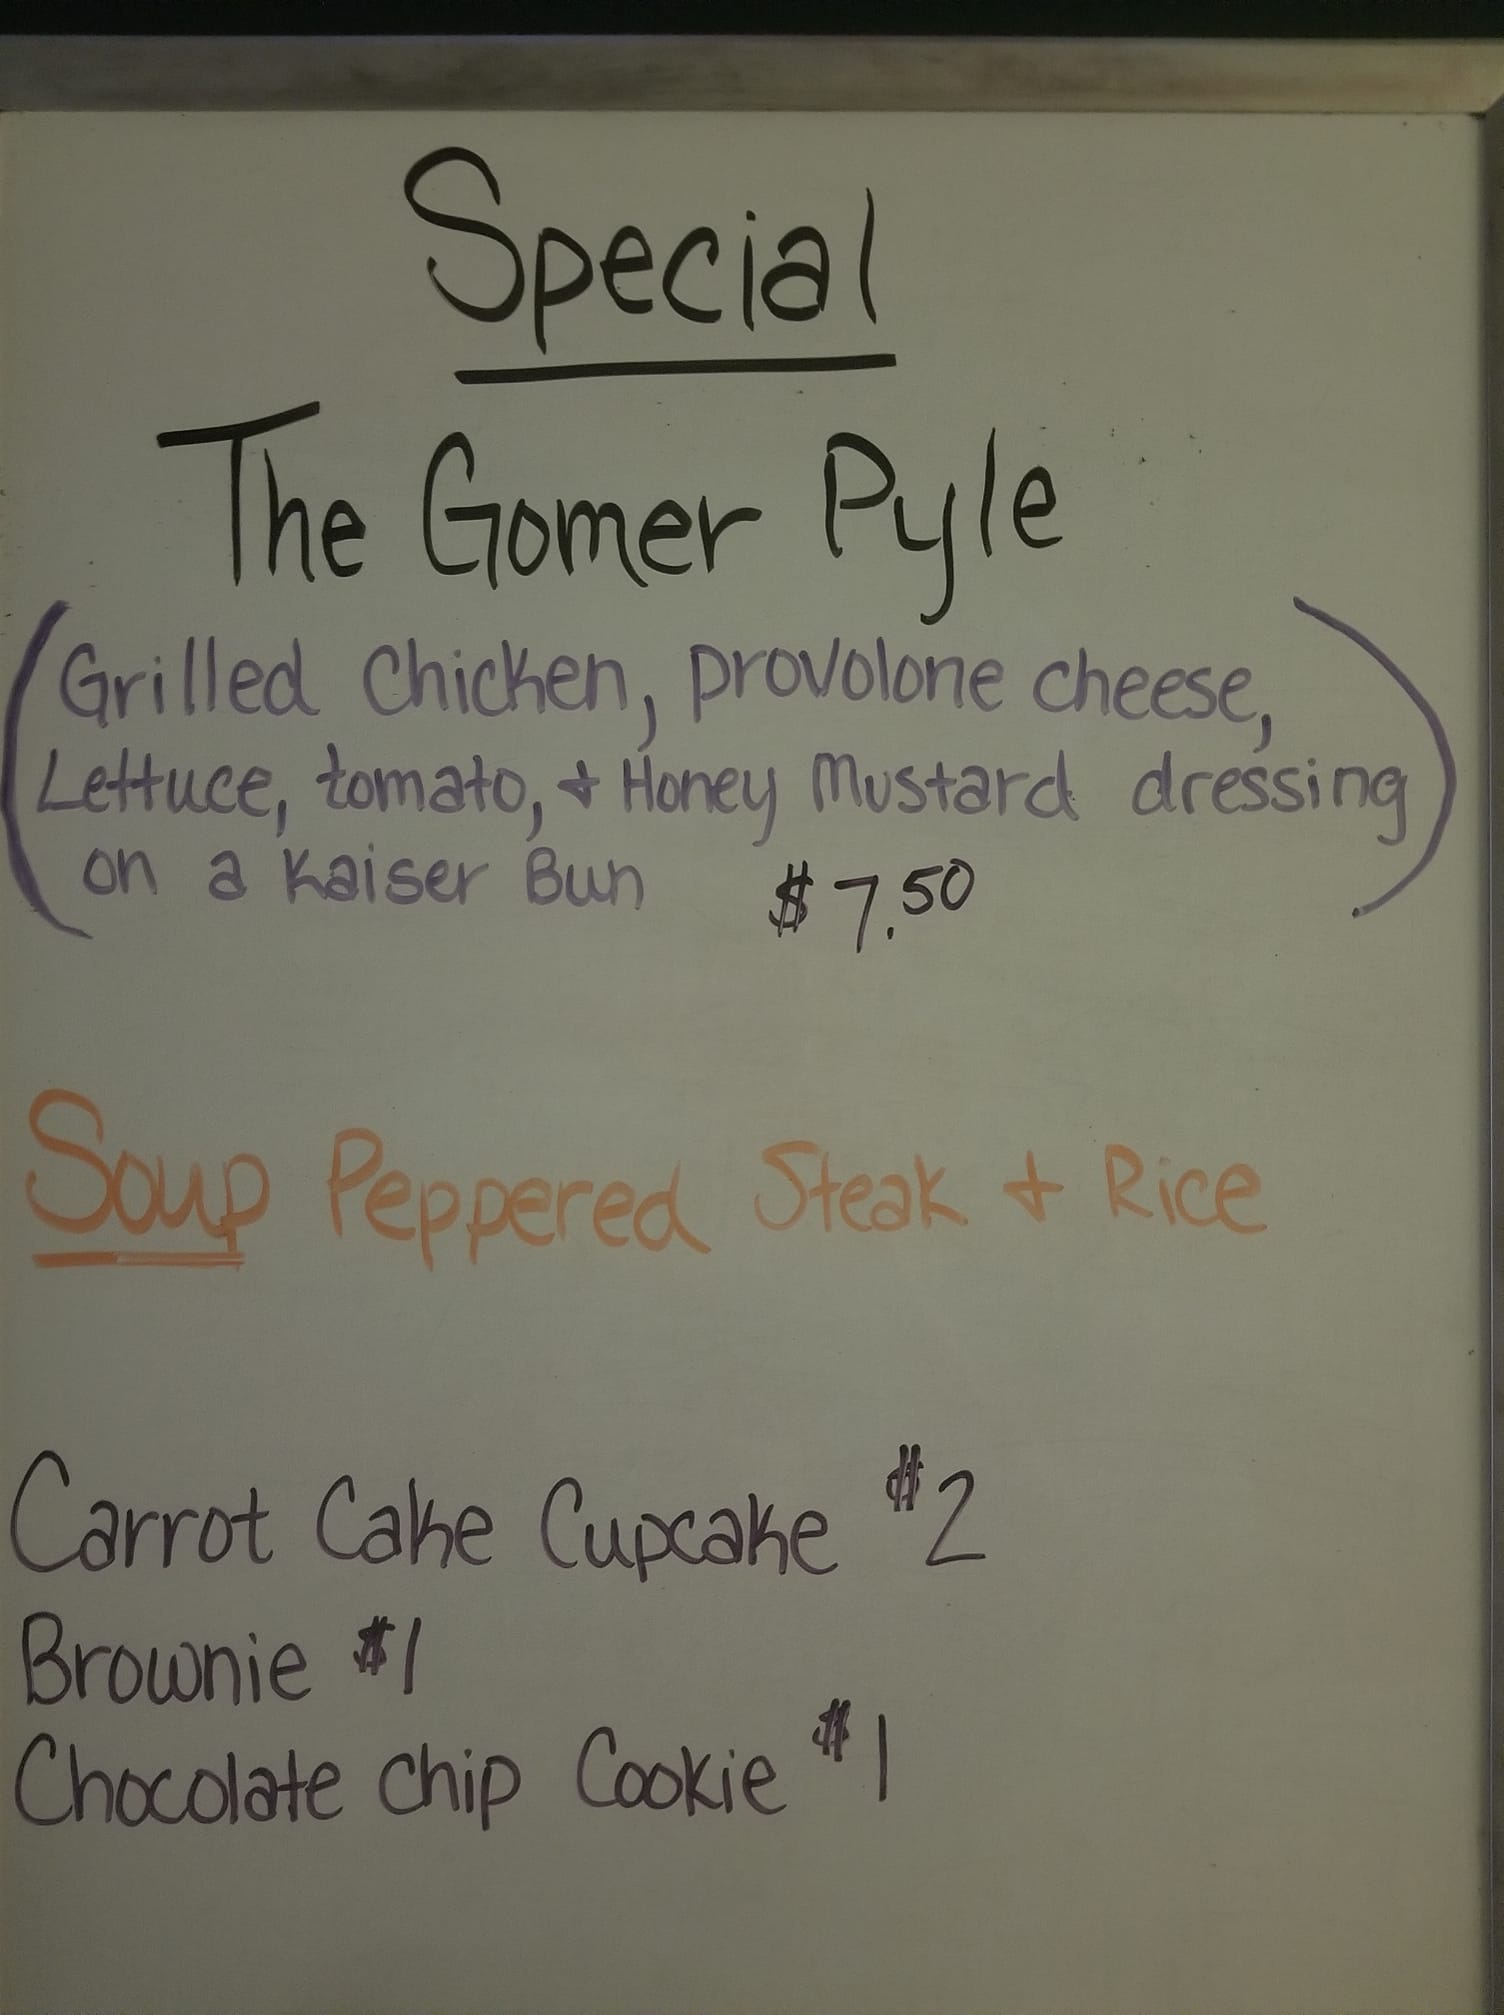 Special
The Gomer Pyle
(Grilled Chicken, provolone cheese,
Lettuce, tomato, + Honey Mustard dressing
on a Kaiser Bun $7.50)
Soup Peppered Steak + Rice
Carrot Cake Cupcake $2
Brownie $1
Chocolate Chip Cookie $1